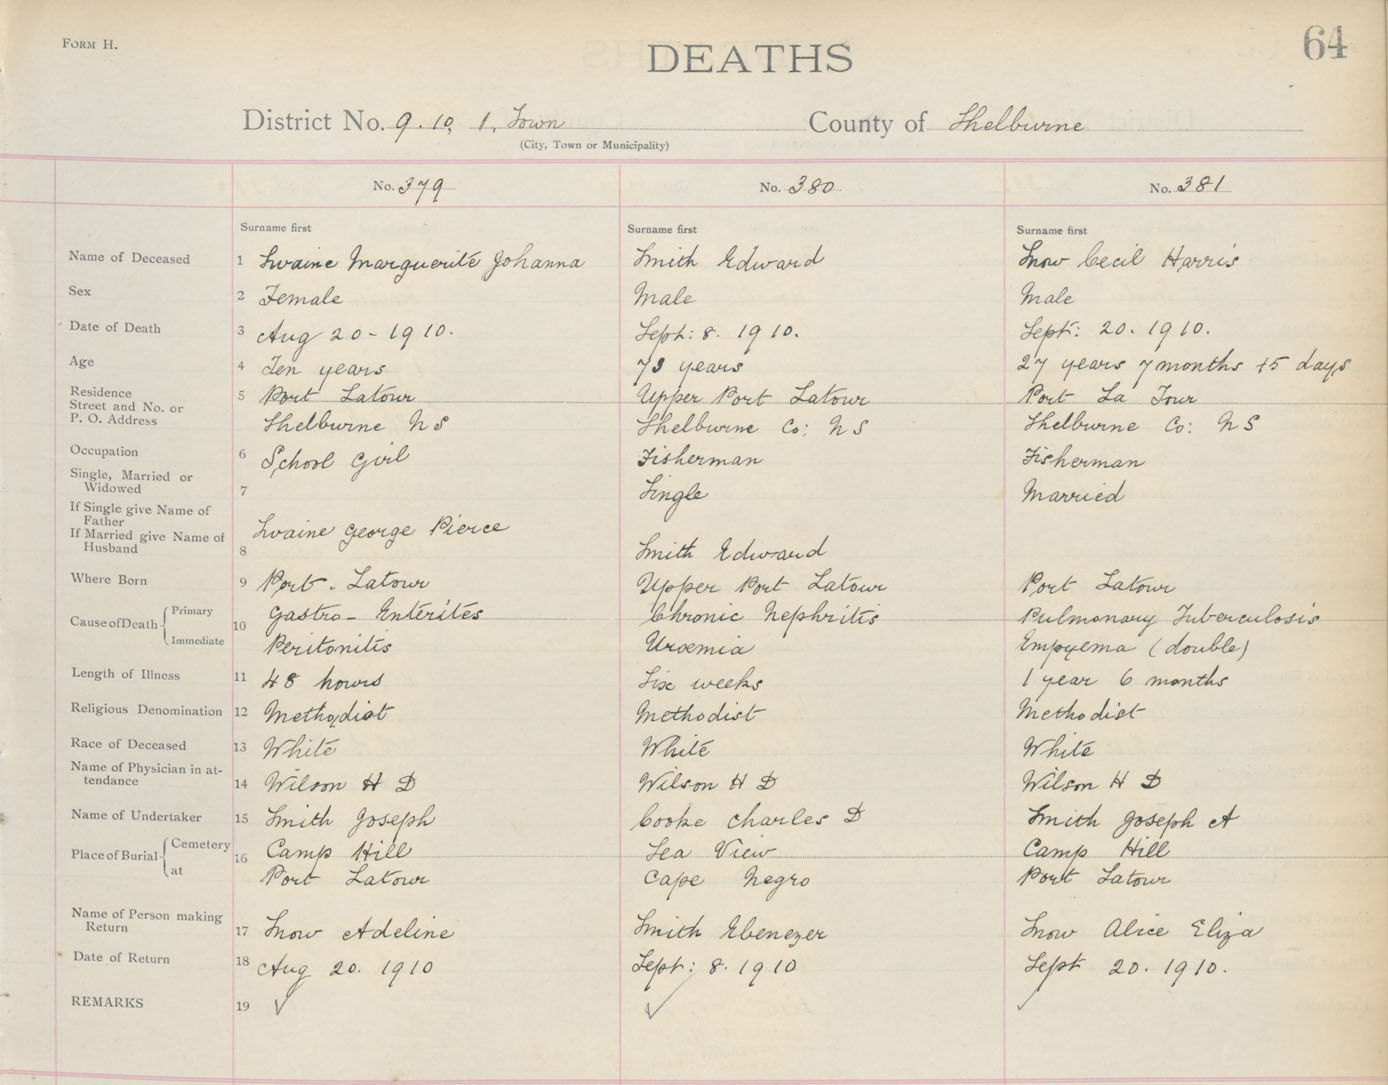 FORM H.
DEATHS
64
District No. 9. 10, 1, Town County of Shelburne
(City, Town or Municipality)
No. 379 No. 380 No. 381
Surname first Surname first Surname first
Name of Deceased 1 Swaine Marguerite Johanna Smith Edward Snow Cecil Harris
Sex 2 Female Male Male
Date of Death 3 Aug 20 - 1910. Sept: 8. 1910. Sept: 20. 1910.
Age 4 Ten years 73 years 27 years 7 months 15 days
Residence 5 Port Latour Upper Port Latour Port La Tour
Street and No. or
P. O. Address Shelburne N S Shelburne Co: N S Shelburne Co: N S
Occupation 6 School Girl Fisherman Fisherman
Single, Married or
Widowed 7 Single Married
If Single give Name of
Father Swaine George Pierce
If Married give Name of
Husband 8 Smith Edward
Where Born 9 Port - Latour Upper Port Latour Port Latour
Cause of Death Primary 10 Gastro - Enterites Chronic Nephritis Pulmonary Tuberculosis
Immediate Peritonitis Uraemia Empyema (double)
Length of Illness 11 48 hours Six weeks 1 year 6 months
Religious Denomination 12 Methodist Methodist Methodist
Race of Deceased 13 White White White
Name of Physician in at-
tendance 14 Wilson H D Wilson H D Wilson H D
Name of Undertaker 15 Smith Joseph Cooke Charles D Smith Joseph A
Place of Burial Cemetery 16 Camp Hill Sea View Camp Hill
at Port Latour Cape Negro Port Latour
Name of Person making
Return 17 Snow Adeline Smith Ebenezer Snow Alice Eliza
Date of Return 18 Aug 20. 1910 Sept: 8. 1910 Sept 20. 1910.
REMARKS 19 ✓ ✓ ✓